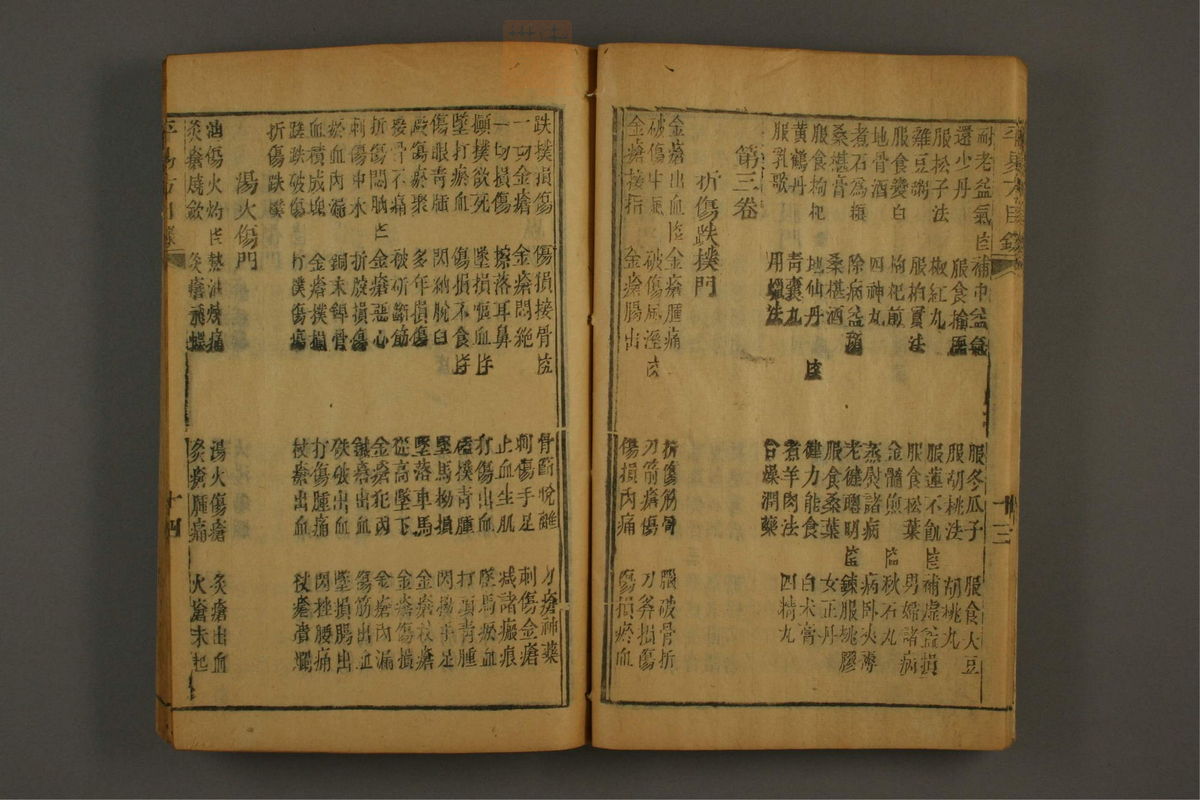 耐老益氣 補中益氣 服冬瓜子 服食大豆
還少丹 服食 服胡桃法 胡桃丸
服松子法 椒紅丸 服蓮不飢 補虛益損
雜豆粥 服柏實法 服食松葉 男婦諸病
服食蔓白 枸杞煎 金髓煎 秋石丸
地骨酒 四神丸 蒸熨諸病 病臥夾專
煮石為糧 除病益 老健聰明 鍊服桃膠
桑椹膏 桑椹酒 服食桑葉 女正丹
服食枸杞 地仙丹 健力能食 白朮膏
黃鶴丹 青囊丸 煮羊肉法 四精丸
服乳歌 用蠟法 合燥潤藥
第三卷
折傷跌撲門
金瘡出血 金瘡腫痛 折傷筋骨 腦破骨折
破傷中風 破傷風溼 刀箭瘡傷 刀斧損傷
金瘡接指 金瘡腸出 傷損內痛 傷損瘀血
十三
跌撲損傷 傷損接骨 骨節脫離 刀瘡神藥
一切金瘡 金瘡悶絕 刺傷手足 刺傷金瘡
一切損傷 擦落耳鼻 止血生肌 滅諸瘢痕
顛撲欲死 墜損嘔血 打傷出血 墜馬瘀血
墜打瘀血 傷損不食 磕撲青腫 打頭青腫
傷眼青腫 閃朒脫臼 墜馬拗損 閃拗手足
毆傷瘀聚 多年損傷 墜落車馬 金瘡杖瘡
接骨不痛 破斫斷筋 從高墜下 金瘡傷損
折傷悶 金瘡惡心 金瘡犯內 金瘡內漏
刺傷中水 折腕損傷 鍼瘡出血 傷筋出血
瘀血內漏 銅末銲骨 破出血 墜損腸出
血積成塊 金瘡撲損 打傷腫痛 閃挫腰痛
跌破傷 打撲傷 杖瘡出血 杖瘡潰爛
折傷跌撲
湯火傷門
油傷火灼 熱油燒痛 湯火傷瘡 灸瘡出血
灸瘡 灸瘡飛蝶 灸瘡腫痛 火瘡未起
十四